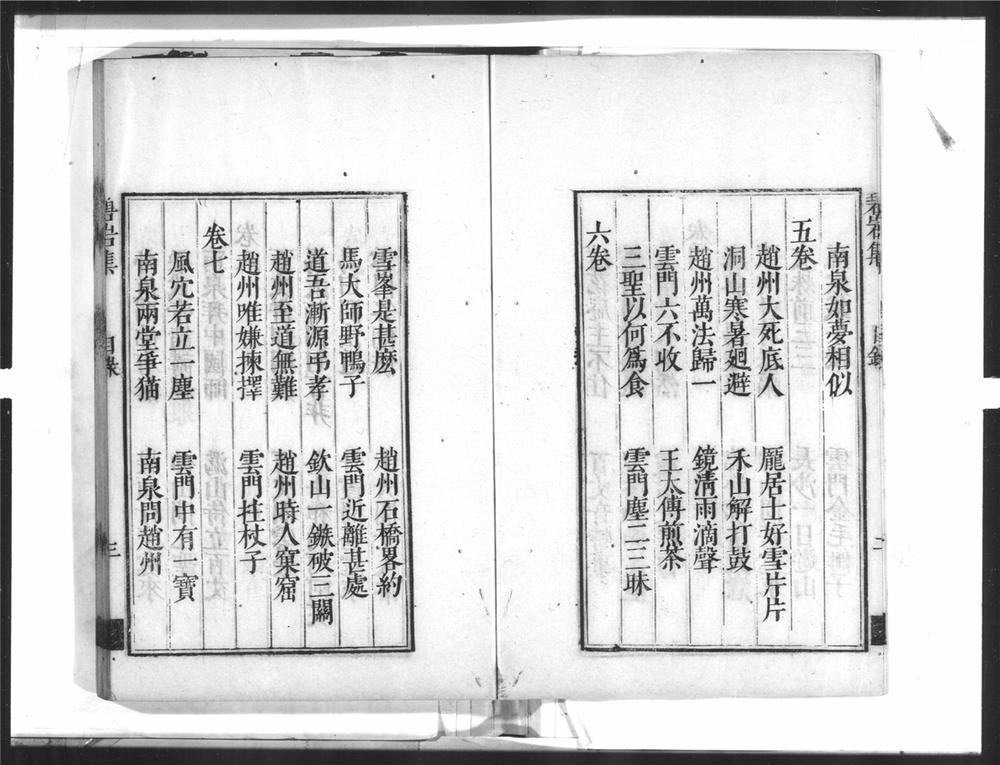 南泉如夢相似
五卷
趙州大死底人 龐居士好雪片片
洞山寒暑廻避 禾山解打鼓
趙州萬法歸一 鏡清雨滴聲
雲門六不收 王太傅煎茶
三聖以何爲食 雲門塵二三昧
六卷
雪峯是甚麽 趙州石橋畧約
馬大師野鴨子 雲門近離甚處
道吾漸源弔孝 欽山一鏃破三關
趙州至道無難 趙州時人窠窟
趙州唯嫌揀擇 雲門拄杖子
卷七
風穴若立一塵 雲門中有一寶
南泉兩堂爭猫 南泉問趙州
集 目錄 三